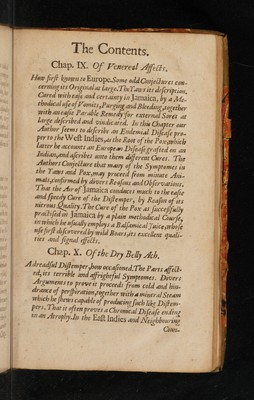 The Contents.
Chap. IX. Of Venereal Affects.
How first known to Europe. Some odd Conjectures con-
cerning its Original at large. The Yaws its description,
Cured with ease and certainty in Jamaica, by a Me-
thodical use of Vomits, Purging and Bleeding, together
with an easie Parable Remedy for external Sores at
large described and vindicated. In this Chapter our
Author seems to describe an Endemial Disease pro-
per to the West Indies, as the Root of the Pox, which
latter he accounts an European Disease grafted on an
Indian, and ascribes unto them different Cures. The
Authors Conjecture that many of the Symptomes in
the Yaws and Pox, may proceed from minute Ani-
mals, confirmed by divers Reasons and Observations.
That the Air of Jamaica conduces much to the easie
and speedy Cure of the Distemper, by Reason of its
nitrous Quality. The Cure of the Pox as successfully
practised in Jamaica by a plain methodical Course,
in which he usually employs a Balsamical Juice, whose
use first discovered by wild Boars, its excellent quali-
ties and signal effects.
Chap. X. Of the Dry Belly Ach.
A dreadful Distemper, how occasioned, The Parts affect-
ed, its terrible and affrightful Symptomes. Divers
Arguments to prove it proceeds from cold and hin-
drance of perspiration, together with a mineral Steam
which he shews capable of producing such like Distem-
pers. That it often proves a Chronical Disease ending
in an Atrophy. In the East Indies and Neighbouring
Coun-